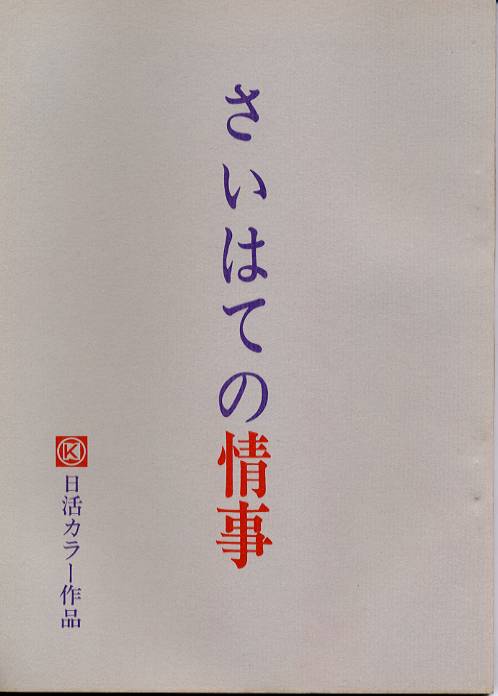 さいはての情事
K
日活カラー作品